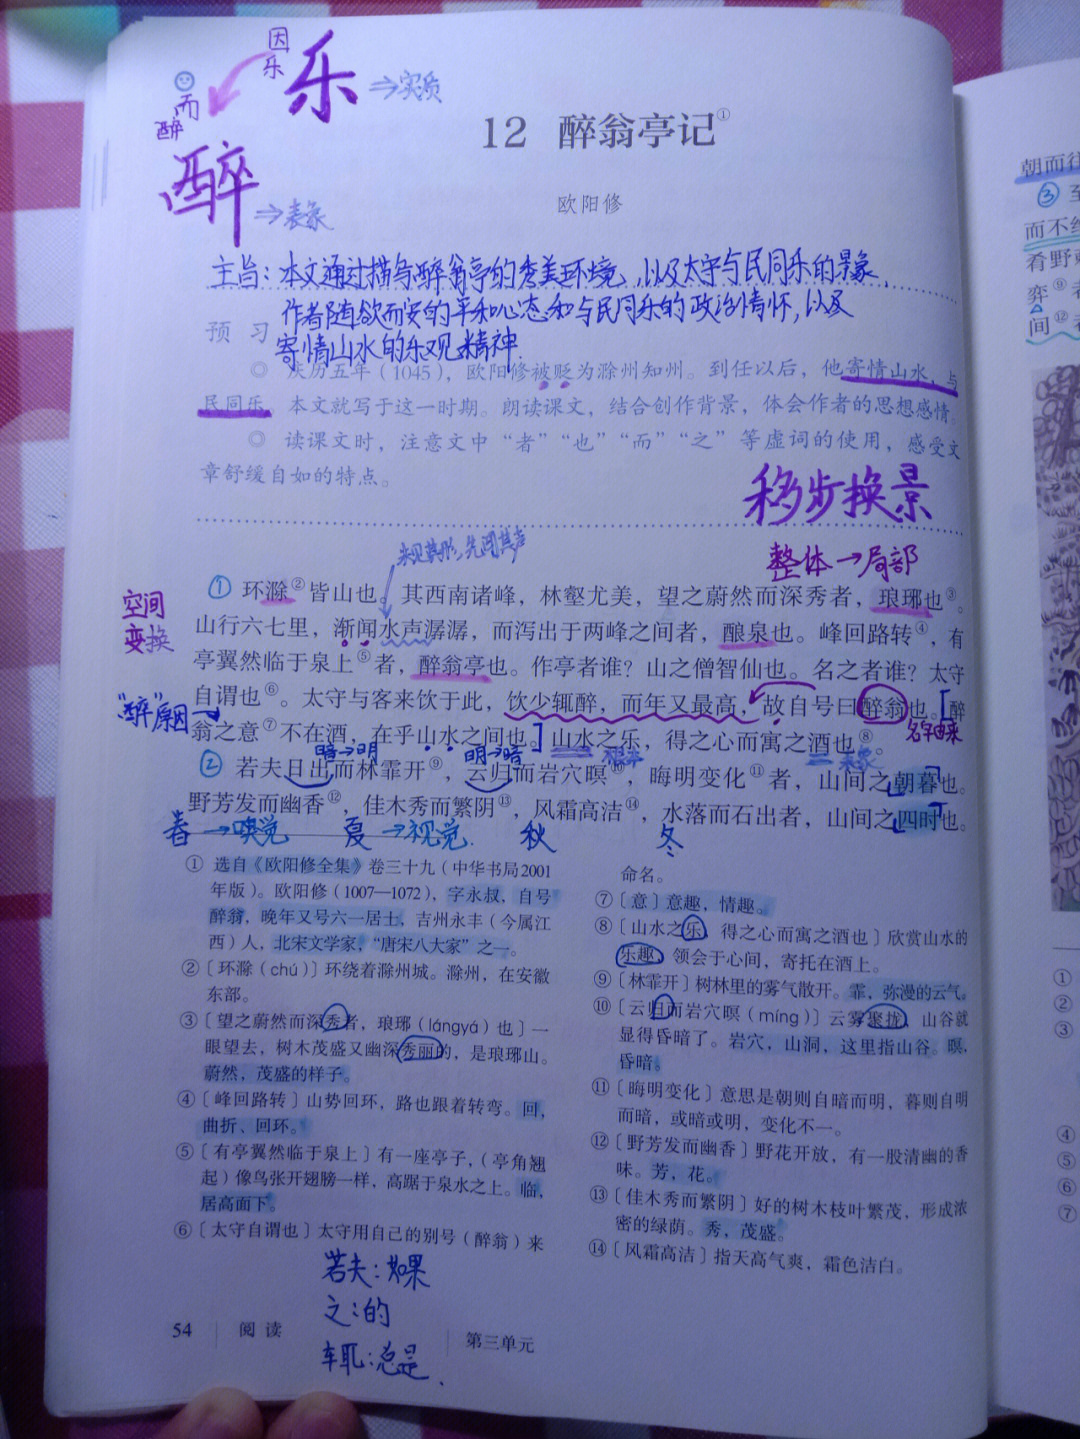 因乐
而醉
乐⇒实质
醉⇒表象
12 醉翁亭记①
欧阳修
主旨：本文通过描写醉翁亭的秀美环境，以及太守与民同乐的景象，
作者随欲而安的平和心态和与民同乐的政治情怀，以及
寄情山水的乐观精神.
预 习
◎ 庆历五年（1045），欧阳修被贬为滁州知州。到任以后，他寄情山水，与
民同乐。本文就写于这一时期。朗读课文，结合创作背景，体会作者的思想感情。
◎ 读课文时，注意文中“者”“也”“而”“之”等虚词的使用，感受文
章舒缓自如的特点。
移步换景
未见其形，先闻其声
整体→局部
空间
变换
① 环滁②皆山也。其西南诸峰，林壑尤美，望之蔚然而深秀者，琅琊也③。
山行六七里，渐闻水声潺潺，而泻出于两峰之间者，酿泉也。峰回路转④，有
亭翼然临于泉上⑤者，醉翁亭也。作亭者谁？山之僧智仙也。名之者谁？太守
自谓也⑥。太守与客来饮于此，饮少辄醉，而年又最高，故自号曰醉翁也。[醉
“醉”原因→
名字由来
翁之意⑦不在酒，在乎山水之间也。]山水之乐，得之心而寓之酒也⑧。
暗→明
明→暗
根本
表象
② 若夫日出而林霏开⑨，云归而岩穴暝⑩，晦明变化⑪者，山间之朝暮也。
野芳发而幽香⑫，佳木秀而繁阴⑬，风霜高洁⑭，水落而石出者，山间之四时也。
春→嗅觉 夏→视觉. 秋 冬
① 选自《欧阳修全集》卷三十九（中华书局2001
年版）。欧阳修（1007—1072），字永叔，自号
醉翁，晚年又号六一居士，吉州永丰（今属江
西）人，北宋文学家，“唐宋八大家”之一。
②〔环滁（chú）〕环绕着滁州城。滁州，在安徽
东部。
③〔望之蔚然而深秀者，琅琊（lángyá）也〕一
眼望去，树木茂盛又幽深秀丽的，是琅琊山。
蔚然，茂盛的样子。
④〔峰回路转〕山势回环，路也跟着转弯。回，
曲折、回环。
⑤〔有亭翼然临于泉上〕有一座亭子，（亭角翘
起）像鸟张开翅膀一样，高踞于泉水之上。临，
居高面下。
⑥〔太守自谓也〕太守用自己的别号（醉翁）来
命名。
⑦〔意〕意趣，情趣。
⑧〔山水之乐，得之心而寓之酒也〕欣赏山水的
乐趣，领会于心间，寄托在酒上。
⑨〔林霏开〕树林里的雾气散开。霏，弥漫的云气。
⑩〔云归而岩穴暝（míng）〕云雾聚拢，山谷就
显得昏暗了。岩穴，山洞，这里指山谷。暝，
昏暗。
⑪〔晦明变化〕意思是朝则自暗而明，暮则自明
而暗，或暗或明，变化不一。
⑫〔野芳发而幽香〕野花开放，有一股清幽的香
味。芳，花。
⑬〔佳木秀而繁阴〕好的树木枝叶繁茂，形成浓
密的绿荫。秀，茂盛。
⑭〔风霜高洁〕指天高气爽，霜色洁白。
若夫：如果
之：的
辄：总是.
54 阅 读 第三单元
朝而往
③ 至
而不绝
肴野
弈⑨者
间⑫
①
②
③
④
⑤
⑥
⑦